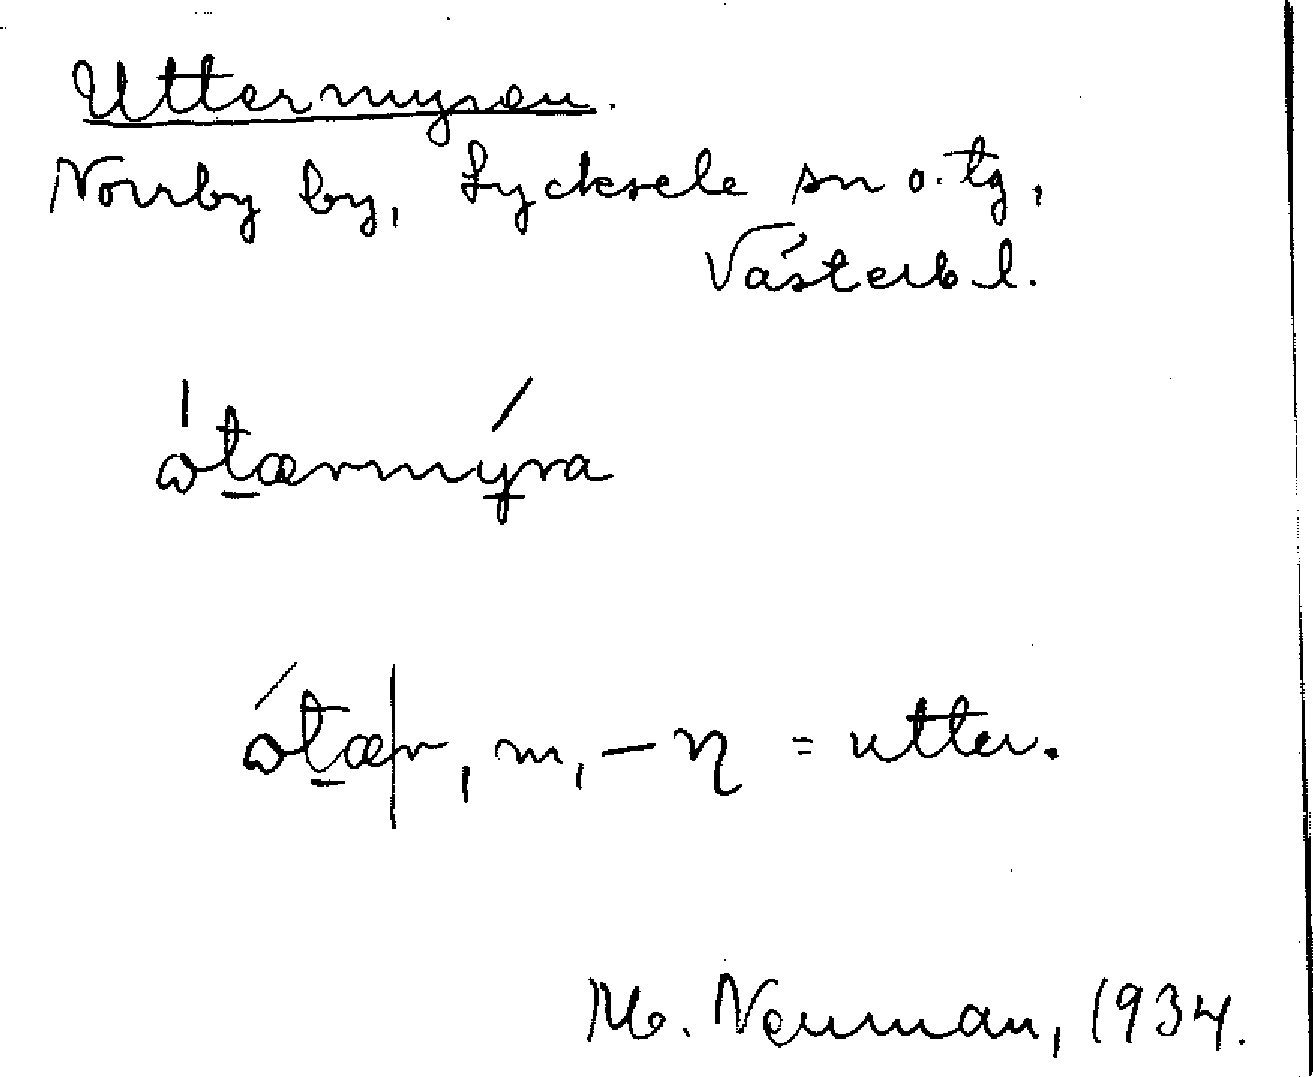 Uttermyran.
Norrby by, Lycksele sn o. tg,
Västerb l.
ώt̠ærmýra
ώt̠æ|r, m, – η = utter.
M. Neuman, 1934.